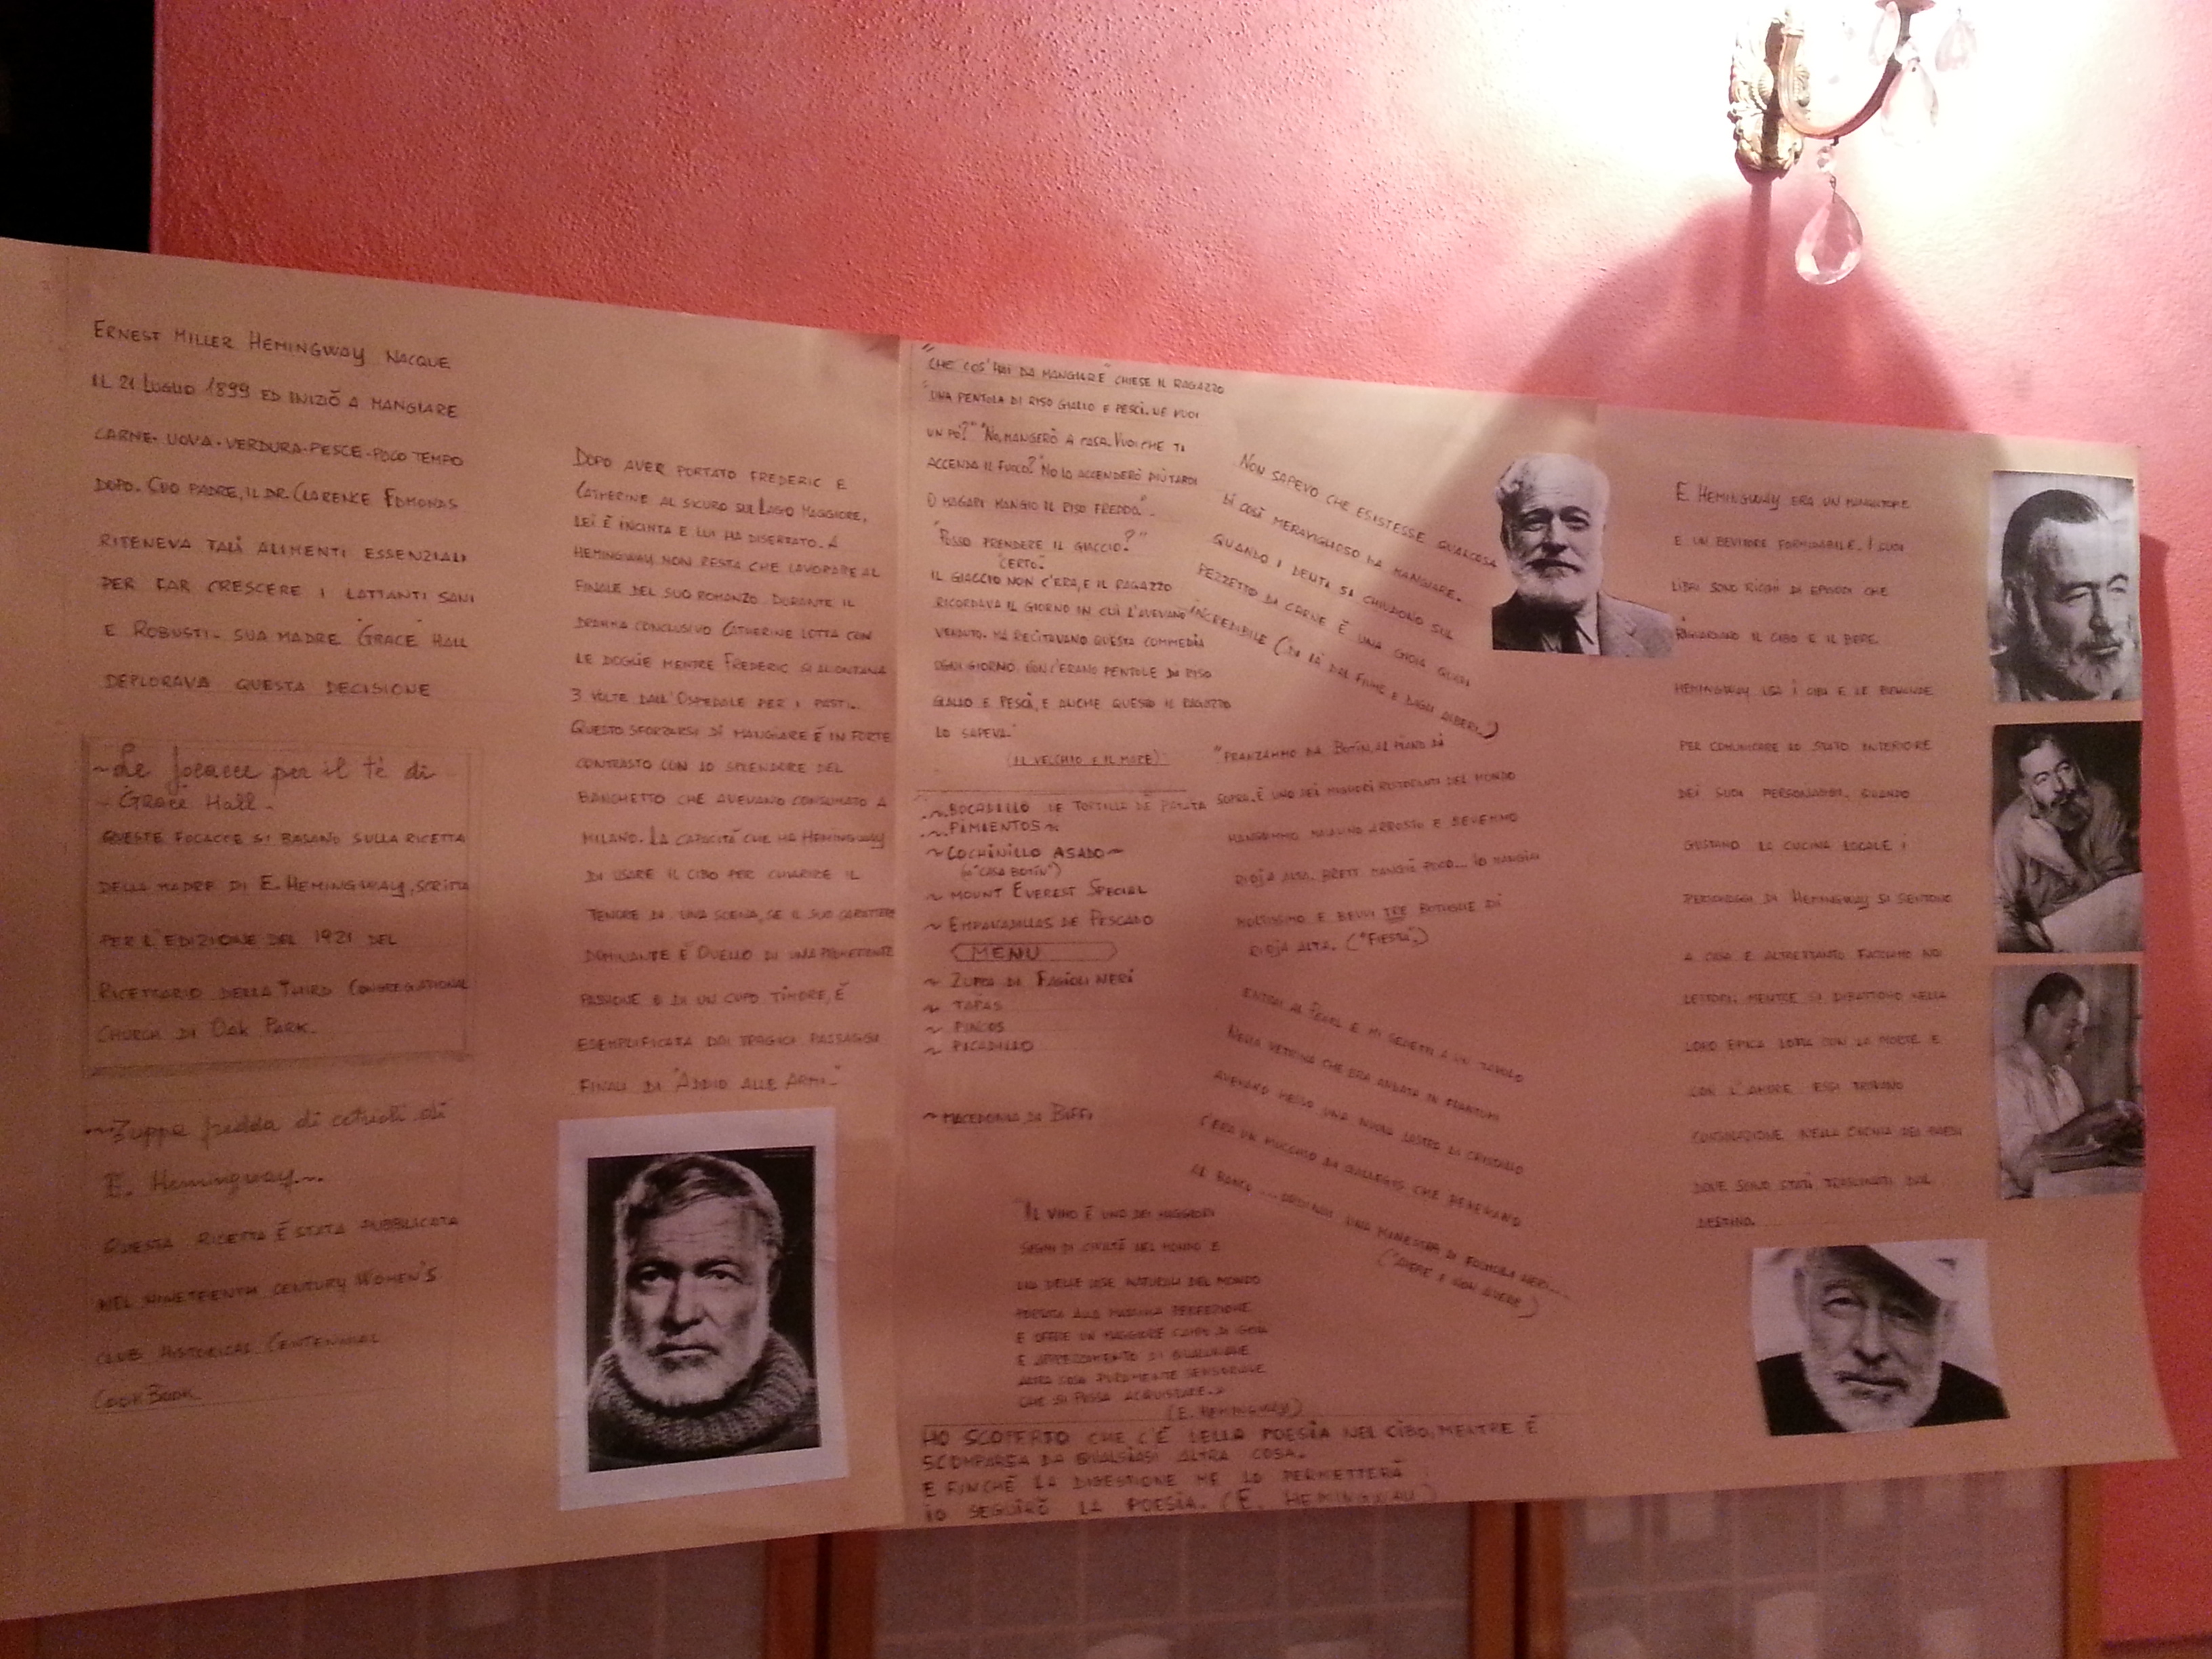 ERNEST MILLER HEMINGWAY NACQUE
IL 21 LUGLIO 1899 ED INIZIÒ A MANGIARE
CARNE-UOVA-VERDURA-PESCE-POCO TEMPO
DOPO. SUO PADRE, IL DR. CLARENCE EDMONDS
RITENEVA TALI ALIMENTI ESSENZIALI
PER FAR CRESCERE I LATTANTI SANI
E ROBUSTI. SUA MADRE GRACE HALL
DEPLORAVA QUESTA DECISIONE
~Le focacce per il tè di
Grace Hall-
QUESTE FOCACCE SI BASANO SULLA RICETTA
DELLA MADRE DI E. HEMINGWAY, SCRITTA
PER L'EDIZIONE DEL 1921 DEL
RICETTARIO DELLA THIRD CONGREGATIONAL
CHURCH DI OAK PARK.
~Zuppa fredda di cetrioli di
E. Hemingway~
QUESTA RICETTA È STATA PUBBLICATA
NEL NINETEENTH CENTURY WOMEN'S
CLUB HISTORICAL CENTENNIAL
COOK BOOK
DOPO AVER PORTATO FREDERIC E
CATHERINE AL SICURO SUL LAGO MAGGIORE,
LEI È INCINTA E LUI HA DISERTATO. A
HEMINGWAY NON RESTA CHE LAVORARE AL
FINALE DEL SUO ROMANZO. DURANTE IL
DRAMMA CONCLUSIVO CATHERINE LOTTA CON
LE DOGLIE MENTRE FREDERIC SI ALLONTANA
3 VOLTE DALL'OSPEDALE PER I PASTI.
QUESTO SFORZARSI DI MANGIARE È IN FORTE
CONTRASTO CON LO SPLENDORE DEL
BANCHETTO CHE AVEVANO CONSUMATO A
MILANO. LA CAPACITÀ CHE HA HEMINGWAY
DI USARE IL CIBO PER CHIARIRE IL
TENORE DI UNA SCENA, SE IL SUO CARATTERE
DOMINANTE È QUELLO DI UNA
PASSIONE O DI UN CUPO TIMORE, È
ESEMPLIFICATA DAI TRAGICI PASSAGGI
FINALI DI "ADDIO ALLE ARMI"
"CHE COS'HAI DA MANGIARE" CHIESE IL RAGAZZO
"UNA PENTOLA DI RISO GIALLO E PESCI. NE VUOI
UN PÒ?" "NO, MANGERÒ A CASA. VUOI CHE TI
ACCENDA IL FUOCO?" NO LO ACCENDERÒ PIÙ TARDI
O MAGARI MANGIO IL RISO FREDDO."
"POSSO PRENDERE IL GIACCIO?"
"CERTO."
IL GIACCIO NON C'ERA, E IL RAGAZZO
RICORDAVA IL GIORNO IN CUI L'AVEVANO
VENDUTO. MA RECITAVANO QUESTA COMMEDIA
OGNI GIORNO. NON C'ERANO PENTOLE DI RISO
GIALLO E PESCI, E ANCHE QUESTO IL RAGAZZO
LO SAPEVA."
(IL VECCHIO E IL MARE)
~BOCADILLO DE TORTILLA DE PATATA
~PIMIENTOS~
~COCHINILLO ASADO~
(A "CASA BOTIN")
~ MOUNT EVEREST SPECIAL
~ EMPANADILLAS DE PESCADO
MENU
~ ZUPPA DI FAGIOLI NERI
~ TAPAS
~ PINCOS
~ PICADILLO
~ MACEDONIA DA BIFFI
"IL VINO È UNO DEI MAGGIORI
SEGNI DI CIVILTÀ NEL MONDO E
UNA DELLE COSE NATURALI DEL MONDO
PORTATA ALLA MASSIMA PERFEZIONE
E OFFRE UN MAGGIORE CAMPO DI GIOIA
E APPREZZAMENTO DI QUALUNQUE
ALTRA COSA PURAMENTE SENSORIALE
CHE SI POSSA ACQUISTARE.»
(E. HEMINGWAY)
HO SCOPERTO CHE C'È DELLA POESIA NEL CIBO, MENTRE È
SCOMPARSA DA QUALSIASI ALTRA COSA.
E FINCHÈ LA DIGESTIONE ME LO PERMETTERÀ
IO SEGUIRÒ LA POESIA. (E. HEMINGWAY)
NON SAPEVO CHE ESISTESSE QUALCOSA
DI COSÌ MERAVIGLIOSO DA MANGIARE.
QUANDO I DENTI SI CHIUDONO SUL
PEZZETTO DI CARNE È UNA GIOIA QUASI
INCREDIBILE ("DI LÀ DAL FIUME E DAGLI ALBERI")
"PRANZAMMO DA BOTIN, AL PIANO DI
SOPRA. È UNO DEI MIGLIORI RISTORANTI DEL MONDO
MANGIAMMO MAIALINO ARROSTO E BEVEMMO
RIOJA ALTA. BRETT MANGIÒ POCO... IO MANGIAI
MOLTISSIMO E BEVVI TRE BOTTIGLIE DI
RIOJA ALTA. ("FIESTA")
ENTRAI AL PEARL E MI SEDETTI A UN TAVOLO
NELLA VETRINA CHE ERA ANDATA IN FRANTUMI
AVEVANO MESSO UNA NUOVA LASTRA DI CRISTALLO
C'ERA UN MUCCHIO DI GALLEGOS CHE BEVEVANO
AL BANCO ... ORDINAI UNA MINESTRA DI FAGIOLI NERI...
("AVERE E NON AVERE")
E. HEMINGWAY ERA UN MANGIATORE
E UN BEVITORE FORMIDABILE. I SUOI
LIBRI SONO RICCHI DI EPISODI CHE
RIGUARDANO IL CIBO E IL BERE.
HEMINGWAY USA I CIBI E LE BEVANDE
PER COMUNICARE LO STATO INTERIORE
DEI SUOI PERSONAGGI. QUANDO
GUSTANO LA CUCINA LOCALE I
PERSONAGGI DI HEMINGWAY SI SENTONO
A CASA E ALTRETTANTO FACCIAMO NOI
LETTORI. MENTRE SI DIBATTONO NELLA
LORO EPICA LOTTA CON LA MORTE E
CON L'AMORE ESSI TROVANO
CONSOLAZIONE NELLA CUCINA DEI PAESI
DOVE SONO STATI TRASCINATI DAL
DESTINO.